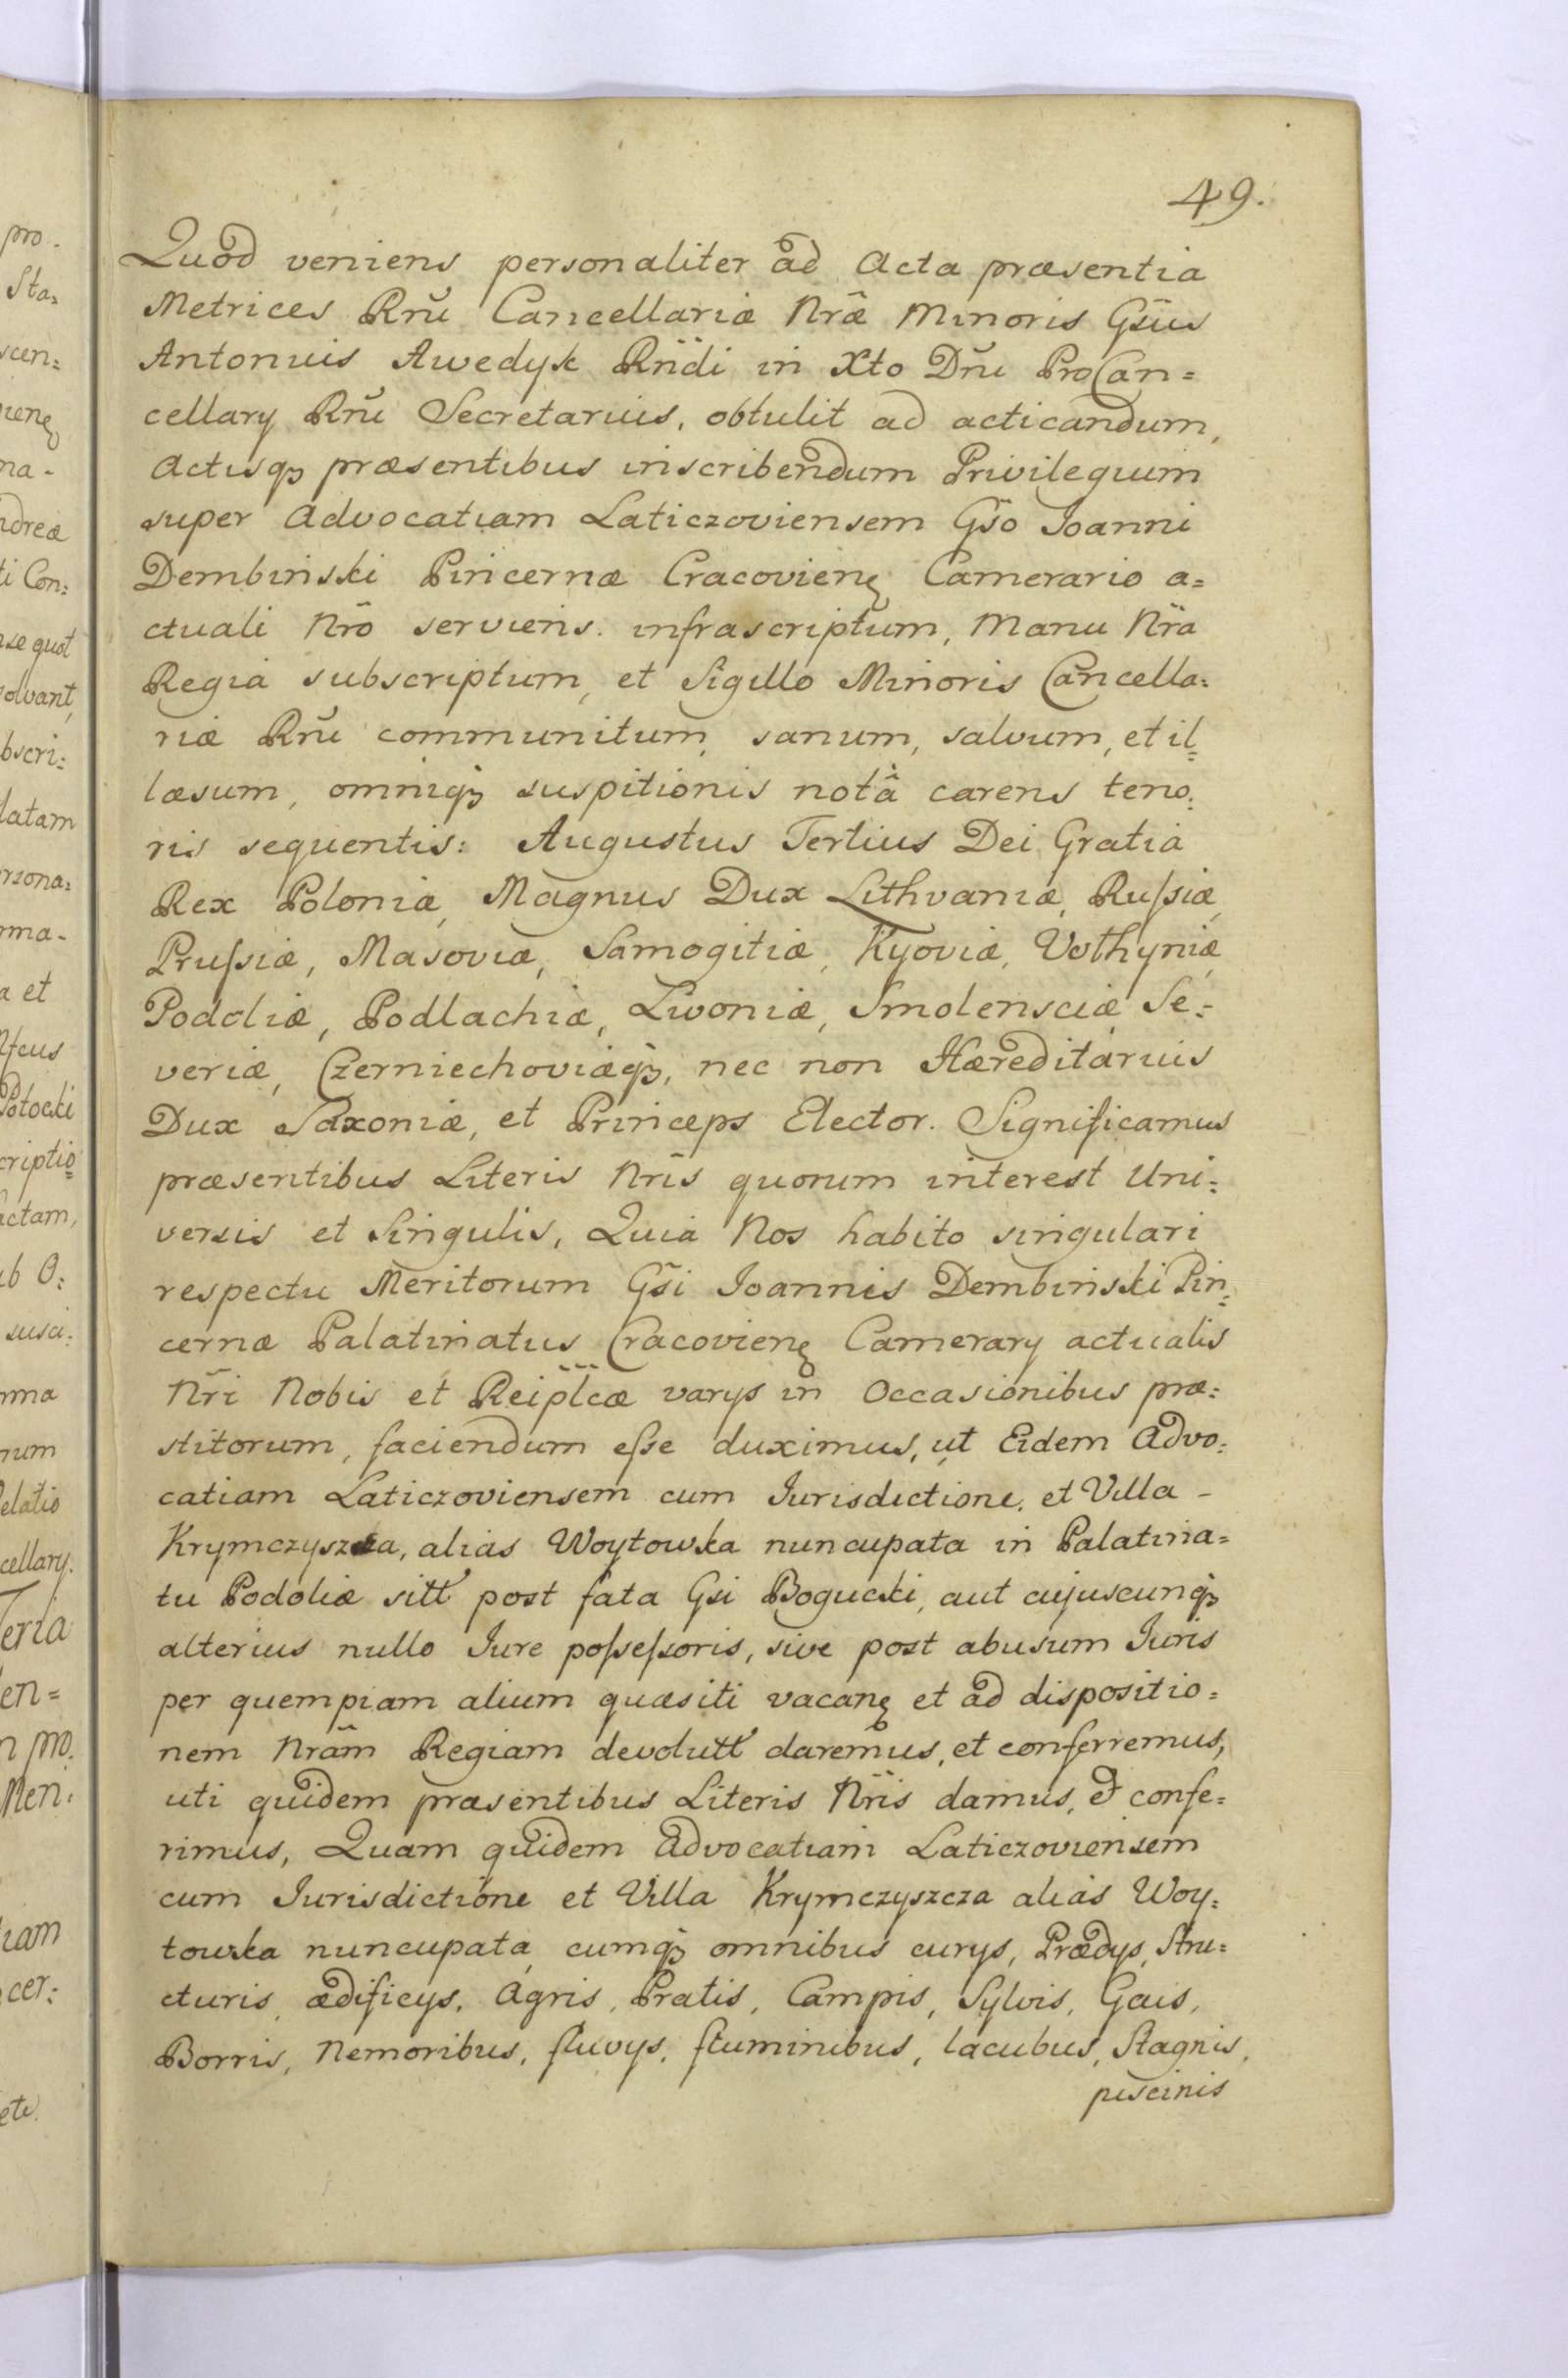 49.
Quod veniens personaliter ad Acta præsentia
Metrices Rnũ Cancellariæ Nræ Minoris Gsus
Antonius Awedyk Rndi in Xto Dñi ProCan=
cellary Rnĩ Secretarius, obtulit ad acticandum,
Actisqꝫ præsentibus inscribendum Privilegium
super Advocatiam Laticzoviensem Gso Joanni
Dembinski Pincernæ Cracovienę Camerario a=
ctuali Nrõ serviens. infrascriptum, Manu Nrã
Regia subscriptum, et Sigillo Minoris Cancella=
riæ Rnĩ communitum, sanum, salvum, et il=
læsum, omniqꝫ suspitionis notâ carens teno=
ris sequentis: Augustus Tertius Dei Gratia
Rex Poloniæ, Magnus Dux Lithvaniæ, Rußiæ,
Prußiæ, Masoviæ, Samogitiæ, Kyoviæ, Volhyniæ,
Podoliæ, Podlachiæ, Livoniæ, Smolensciæ, Se=
veriæ, Czerniechoviæqꝫ, nec non Hæreditarius
Dux Saxoniæ, et Princeps Elector. Significamus
præsentibus Literis Nrĩs quorum interest Uni=
versis et Singulis, Quia Nos habito singulari
respectu Meritorum Gsĩ Joannis Dembinski Pin=
cernæ Palatinatus Cracovienę Camerary actualis
Nrĩ Nobis et Reiplcæ varys in Occasionibus præ=
stitorum, faciendum eße duximus, ut Eidem Advo=
catiam Laticzoviensem cum Jurisdictione, et Villa -
Krymczyszcza, alias Woytowka nuncupata in Palatina=
tu Podoliæ sitt post fata Gsi Bogucki, aut cujuscunqꝫ
alterius nullo Jure poßeßoris, sive post abusum Juris
per quempiam alium quæsiti vacanę et ad dispositio=
nem Nrãm Regiam devolutt daremus, et conferremus,
uti quidem præsentibus Literis Nrĩs damus, & confe=
rimus, Quam quidem Advocatiam Laticzoviensem
cum Jurisdictione et Villa Krymczyszcza alias Woy=
towka nuncupata, cumqꝫ omnibus curys, Prædys, Stru=
cturis, ædificys, Agris, Pratis, Campis, Sylvis, Gais,
Borris, Nemoribus, fluvys, fluminibus, lacubus, Stagnis,
piscinis